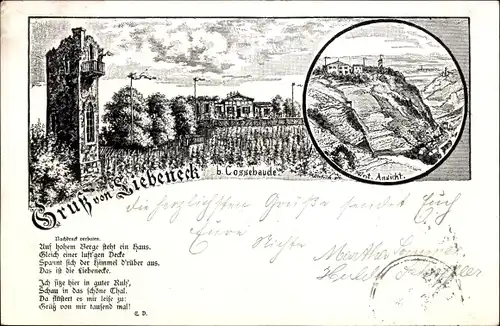 Gruß von Liebeneck
b. Cossebaude.
Ansicht.
Nachdruck verboten.
Auf hohem Berge steht ein Haus.
Gleich einer luft'gen Decke
Spannt sich der Himmel d'rüber aus.
Das ist die Liebenecke.
Ich sitze hier in guter Ruh',
Schau in das schöne Thal.
Da flüstert es mir leise zu:
Grüß von mir tausend mal!
C. D.
die herzlichsten Grüße sendet Euch
Eure Nichte Martha